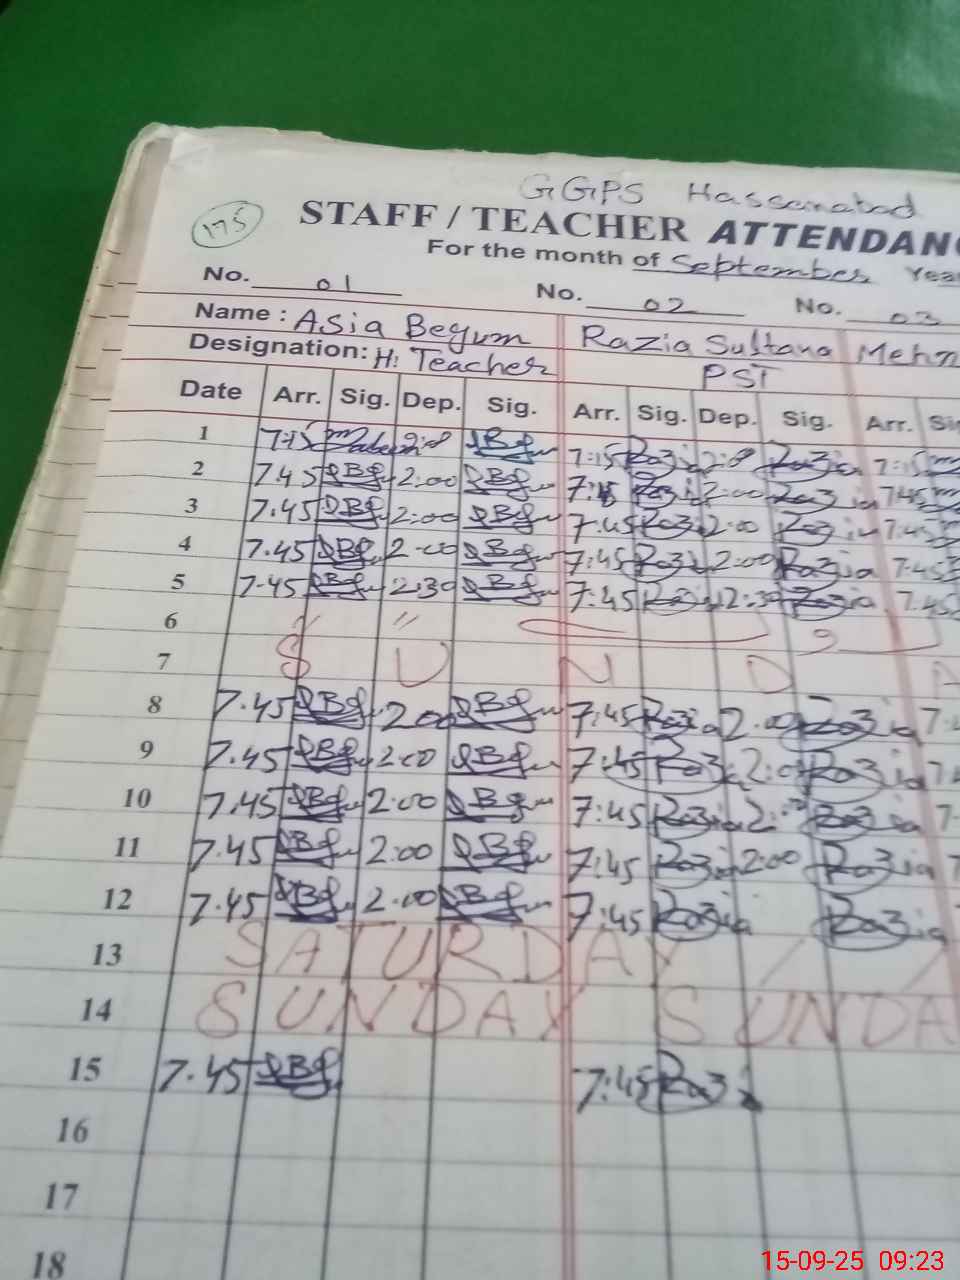 GGPS Hassanabad
175
STAFF / TEACHER ATTENDAN
For the month of September Year
No. 01 No. 02 No. 03
Name : Asia Begum Razia Sultana Mehn
Designation: H. Teacher PST
Date Arr. Sig. Dep. Sig. Arr. Sig. Dep. Sig. Arr. Si
1 7:15 7:15 Razia 2:0 Razia 7:15
2 7.45 2:00 Razia 2:00 Razia 7:45
3 7.45 2:00 7:45 Razi 2:00 Razia 7:45
4 7.45 2:00 7:45 Razi 2:00 Razia 7:45
5 7.45 2:30 7:45 Razi 2:30 Razia 7.45
6 " "
7 S U N D A
8 7.45 2:00 7:45 Razia 2:00 Razia 7:
9 7.45 2:00 7:45 Razia 2:0 Razia 7:
10 7.45 2:00 7:45 Razia 2:00 Razia 7:
11 7.45 2:00 7:45 Razia 2:00 Razia 7
12 7.45 2:00 7:45 Razia Razia
13 SATURDAY
14 SUNDAY SUNDA
15 7.45 7:45 Razi
16
17
18
15-09-25 09:23